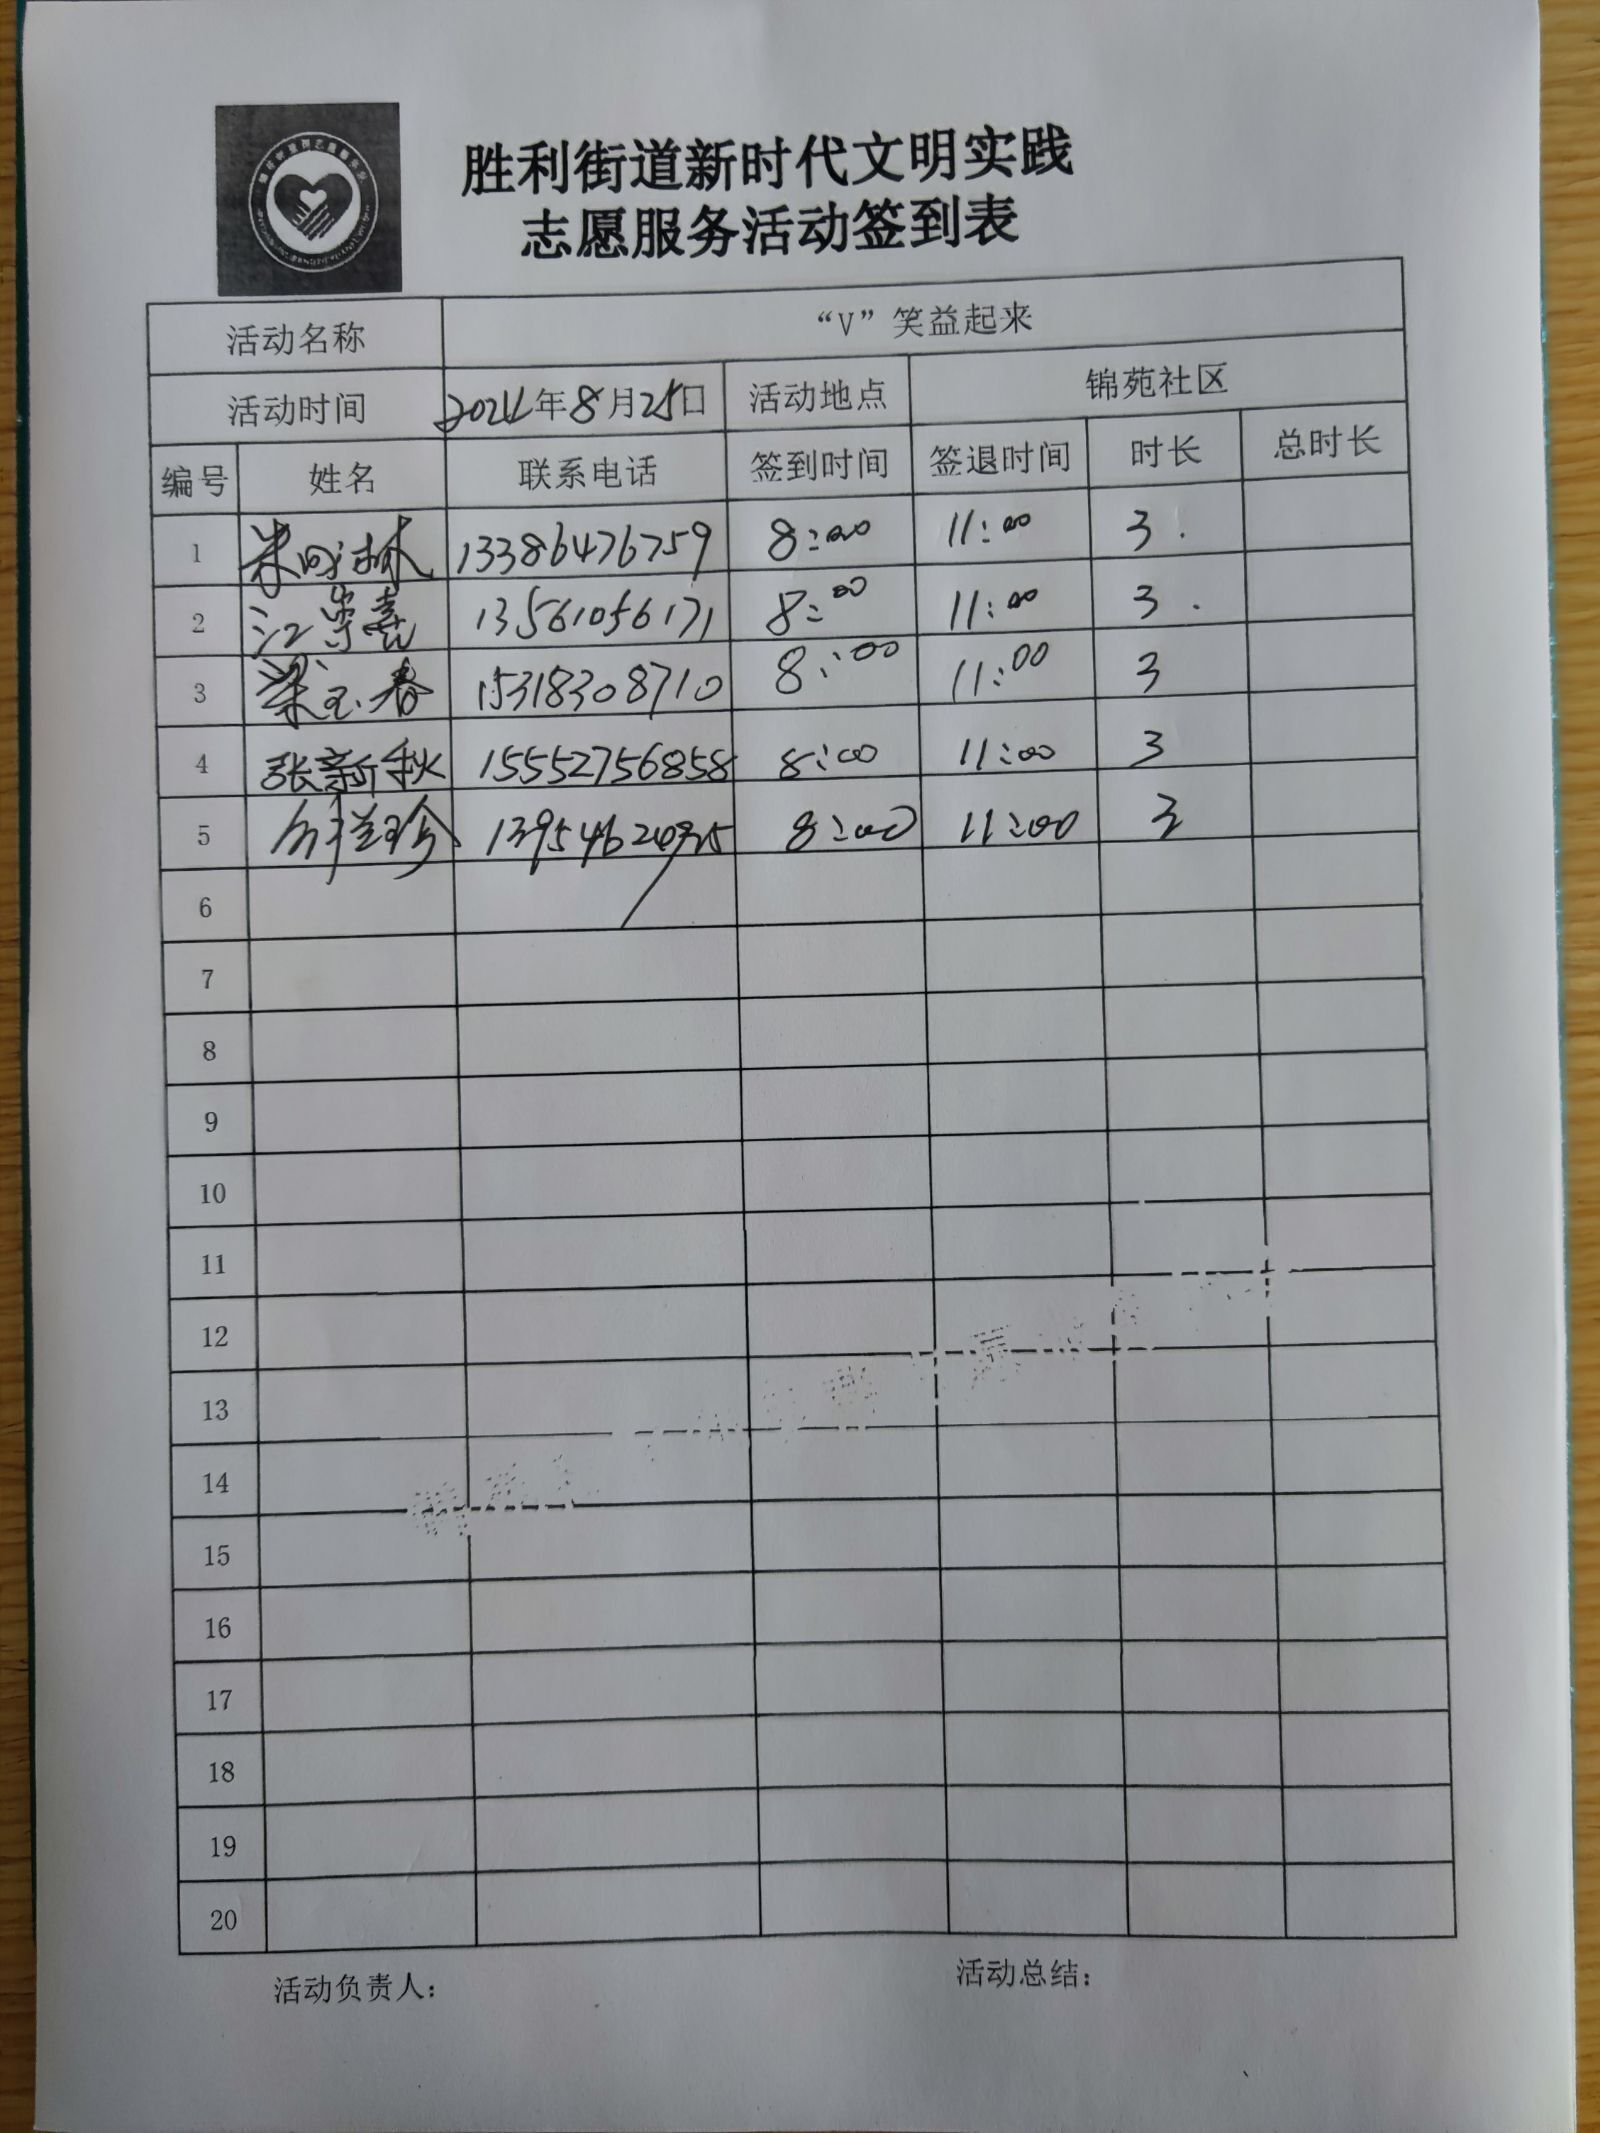 胜利街道新时代文明实践
志愿服务活动签到表
活动名称 “V”笑益起来
活动时间 年8月25日 活动地点 锦苑社区
编号 姓名 联系电话 签到时间 签退时间 时长 总时长
1 13386476759 8:00 11:00 3
2 江崇喜 13561056171 8:00 11:00 3
3 梁玉春 15318308710 8:00 11:00 3
4 张新秋 15552756858 8:00 11:00 3
5 8:00 11:00 3
6
7
8
9
10
11
12
13
14
15
16
17
18
19
20
活动负责人: 活动总结: